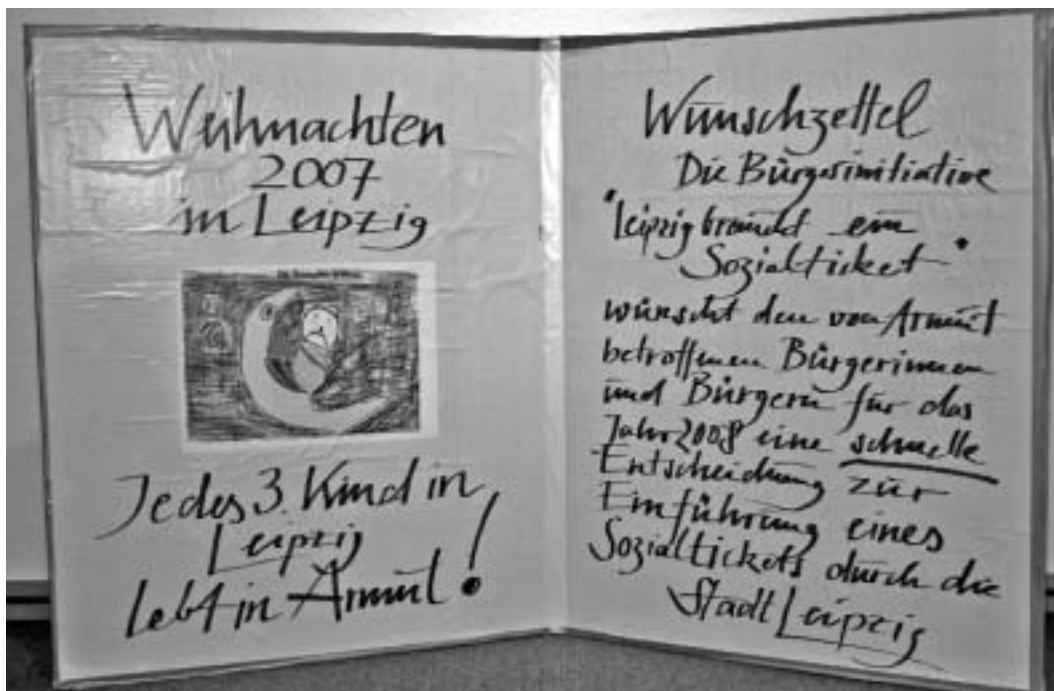 Weihnachten
2007
in Leipzig
Jedes 3. Kind in
Leipzig
lebt in Armut!
Wunschzettel
Die Bürgerinitiative
"Leipzig braucht ein
Sozialticket"
wünscht den von Armut
betroffenen Bürgerinnen
und Bürgern für das
Jahr 2008 eine schnelle
Entscheidung zur
Einführung eines
Sozialtickets durch die
Stadt Leipzig